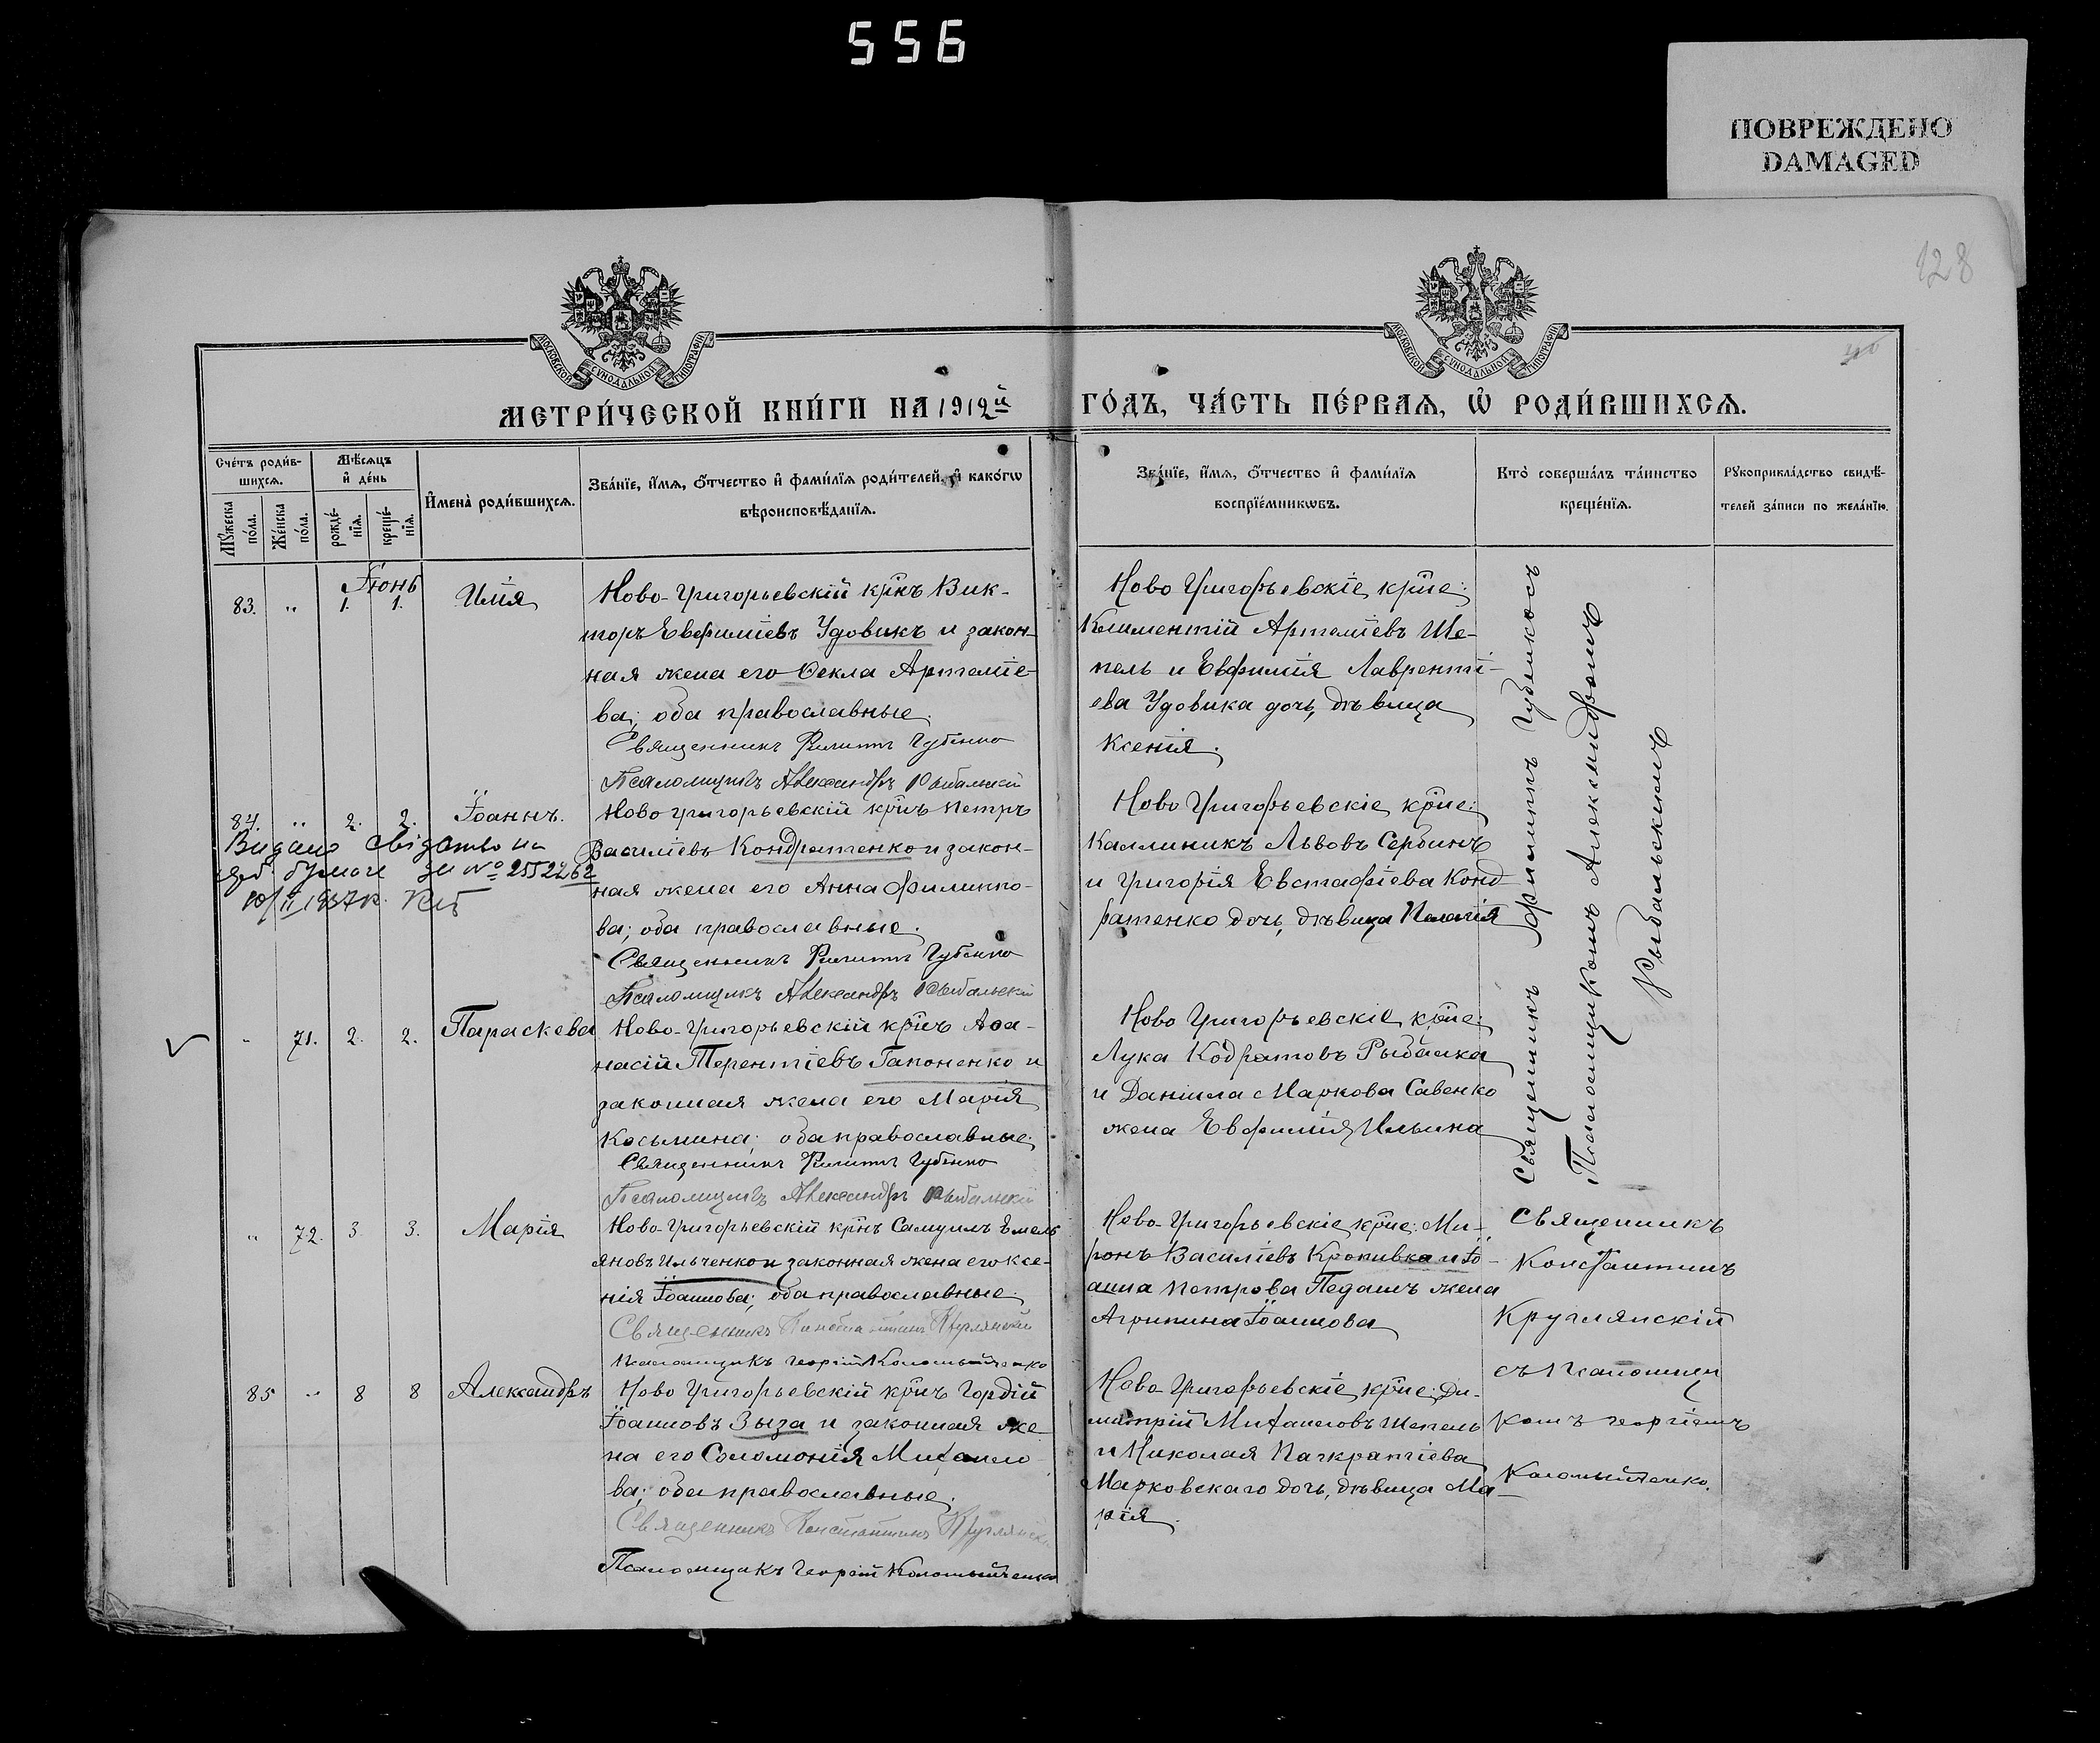 556
ПОВРЕЖДЕНО
DAMAGED
128
МОСКОВСКОЙ СѴНОДАЛЬНОЙ ТИПОГРАФІИ
МОСКОВСКОЙ СѴНОДАЛЬНОЙ ТИПОГРАФІИ
МЕТРИ́ЧЕСКОЙ КНИ́ГИ НА 1912й ГО́ДЪ, ЧА́СТЬ ПЕ́РВАѦ, Ѡ҆ РОДИ́ВШИХСѦ.
Сче́тъ роди́в-
шихсѧ.
Мѣ́сѧцъ
и҆ де́нь
Мꙋ́жеска
по́ла.
Же́нска
по́ла.
рожде́-
нїѧ.
креще́-
нїѧ.
И҆мена̀ роди́вшихсѧ.
Зва́нїе, и҆́мѧ, ѻ҆́тчество и҆ фами́лїѧ роди́телей, и҆ како́гѡ
вѣроисповѣ́данїѧ.
Зва́нїе, и҆́мѧ, ѻ҆́тчество и҆ фами́лїѧ
воспрїе́мникѡвъ.
Кто̀ соверша́лъ та́инство
креще́нїѧ.
Рꙋкоприкла́дство свидѣ́-
телей за́писи по жела́нїю.
Іюнь
83. " 1. 1. Илія
Ново-Григорьевскій крнъ Вик-
торъ Евфиміевъ Удовикъ и закон-
ная жена его Ѳекла Артеміе-
ва; оба православные.
Священникъ Филиппъ Губенко
Псаломщикъ Александръ Рыбальскій
Ново Григорьевскіе крне:
Климентій Артеміевъ Ше-
пель и Евфимія Лаврентi-
ева Удовика дочь, дѣвица
Ксенія.
84. " 2. 2. Іоаннъ.
Видано свідоцтво на
герб. бумаге за № 255226
10/II 1937 р.
Ново Григорьевскій крнъ Петръ
Василіевъ Кондратенко и закон-
ная жена его Анна Филиппо-
ва; оба православные.
Священникъ Филиппъ Губенко
Псаломщикъ Александръ Рыбальскій
Ново Григорьевскіе крне:
Каллиникъ Львовъ Сербинъ
и Григорія Евстафіева Конд-
ратенко дочь, дѣвица Пелагія
" 71. 2. 2. Параскева
Ново-Григорьевскій крнъ Аѳа-
насій Терентіевъ Гапоненко и
законная жена его Марія
Косьмина; оба православные.
Священникъ Филиппъ Губенко
Псаломщикъ Александръ Рыбальскій
Ново Григорьевскіе крне:
Лука Кодратовъ Рыбалка
и Даніила Маркова Савенко
жена Евфимія Ильина
Священникъ Филиппъ Губенко съ
Псаломщикомъ Александромъ
Рыбальскимъ
" 72. 3. 3. Марія
Ново-Григорьевскій крнъ Самуилъ Емель
яновъ Ильченко и законная жена его Ксе-
нія Іоаннова; оба православные.
Священникъ Константинъ Круглянскій
Псаломщикъ Георгій Коломыйченко
Ново-Григорьевскіе крне: Ми-
ронъ Василіевъ Кропивка и Іо-
анна Петрова Педашъ жена
Агрипина Іоаннова
Священникъ
Константинъ
Круглянскій
съ Псаломщи
комъ Георгіемъ
Коломыйченко.
85 " 8 8 Александръ
Ново Григорьевскій крнъ Гордій
Іоанновъ Зыза и законная же-
на его Соломонія Михаило
ва; оба православные.
Священникъ Константинъ Круглянскій
Псаломщикъ Георгій Коломыйченко
Ново Григорьевскіе крне: Ди-
митрій Михаиловъ Шепель
и Николая Панкратіева
Марковскаго дочь, дѣвица Ма-
рія.